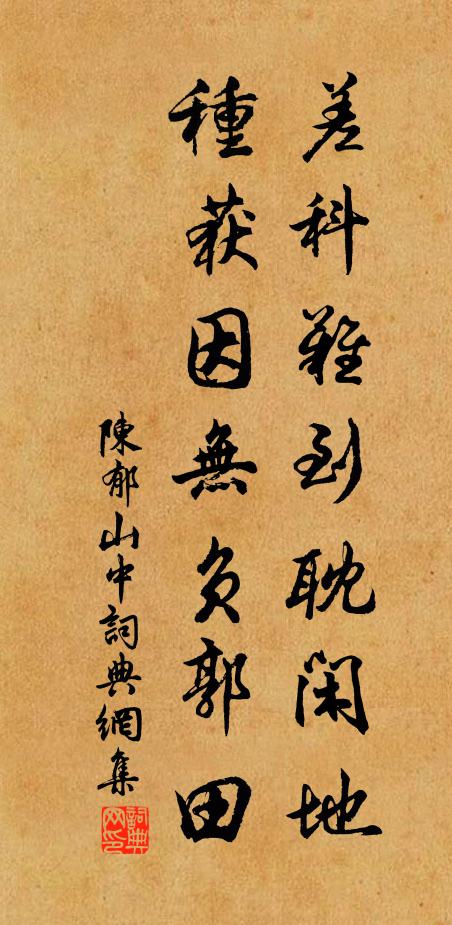 差科難到耽閑地
種获因無負郭田
陳郁山中詞典網集
詞典网印